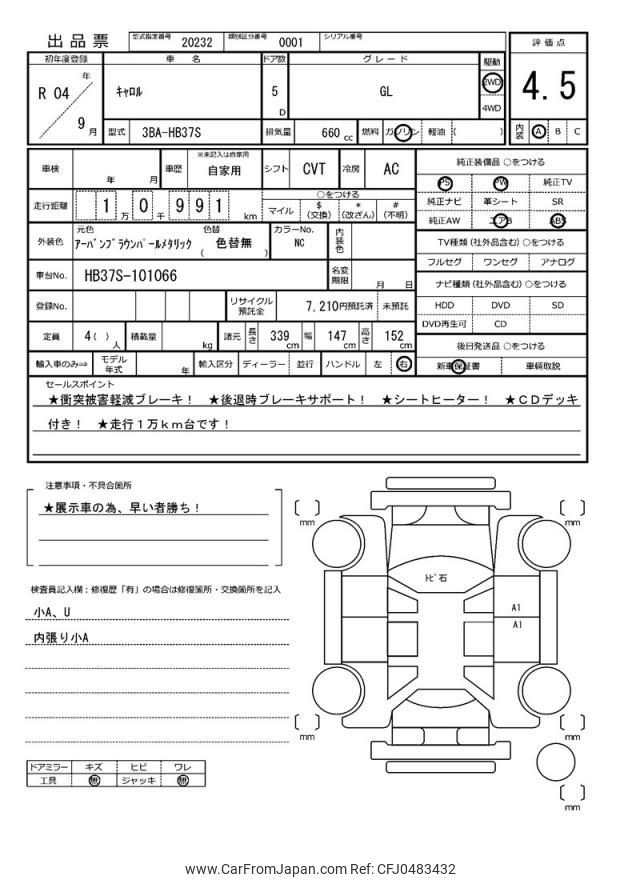 出品票
型式指定番号 20232 類別区分番号 0001 シリアル番号
評価点
4.5
内装 A B C
初年度登録 車名 ドア数 グレード 駆動
R 04 年 9 月
キャロル 5 D GL
2WD
4WD
型式 3BA-HB37S 排気量 660 cc 燃料 ガソリン 軽油 ( )
車検 年 月 車歴 ※未記入は自家用 自家用 シフト CVT 冷房 AC
走行距離 1 万 0 千 9 9 1 km
○をつける
マイル $(交換) *(改ざん) #(不明)
外装色 元色 アーバンブラウンパールメタリック 色替 ( 色替無 ) カラーNo. NC 内装色
車台No. HB37S-101066 名変期限 月 日
登録No. リサイクル預託金 7,210円預託済 未預託
定員 4( )人 積載量 kg 諸元 長さ 339cm 幅 147cm 高さ 152cm
輸入車のみ⇒ モデル年式 年 輸入区分 ディーラー 並行 ハンドル 左 右
純正装備品 ○をつける
PS PW 純正TV
純正ナビ 革シート SR
純正AW エアB ABS
TV種類(社外品含む)○をつける
フルセグ ワンセグ アナログ
ナビ種類(社外品含む)○をつける
HDD DVD SD
DVD再生可 CD
後日発送品 ○をつける
新車保証書 車輌取説
セールスポイント
★衝突被害軽減ブレーキ！ ★後退時ブレーキサポート！ ★シートヒーター！ ★ＣＤデッキ
付き！ ★走行１万ｋｍ台です！
注意事項・不具合箇所
★展示車の為、早い者勝ち！
検査員記入欄：修復歴「有」の場合は修復箇所・交換箇所を記入
小A、U
内張り小A
ドアミラー キズ ヒビ ワレ
工具 無 ジャッキ 無
mm
mm
トビ石
A1
A1
mm
mm
mm
www.CarFromJapan.com Ref: CFJ0483432